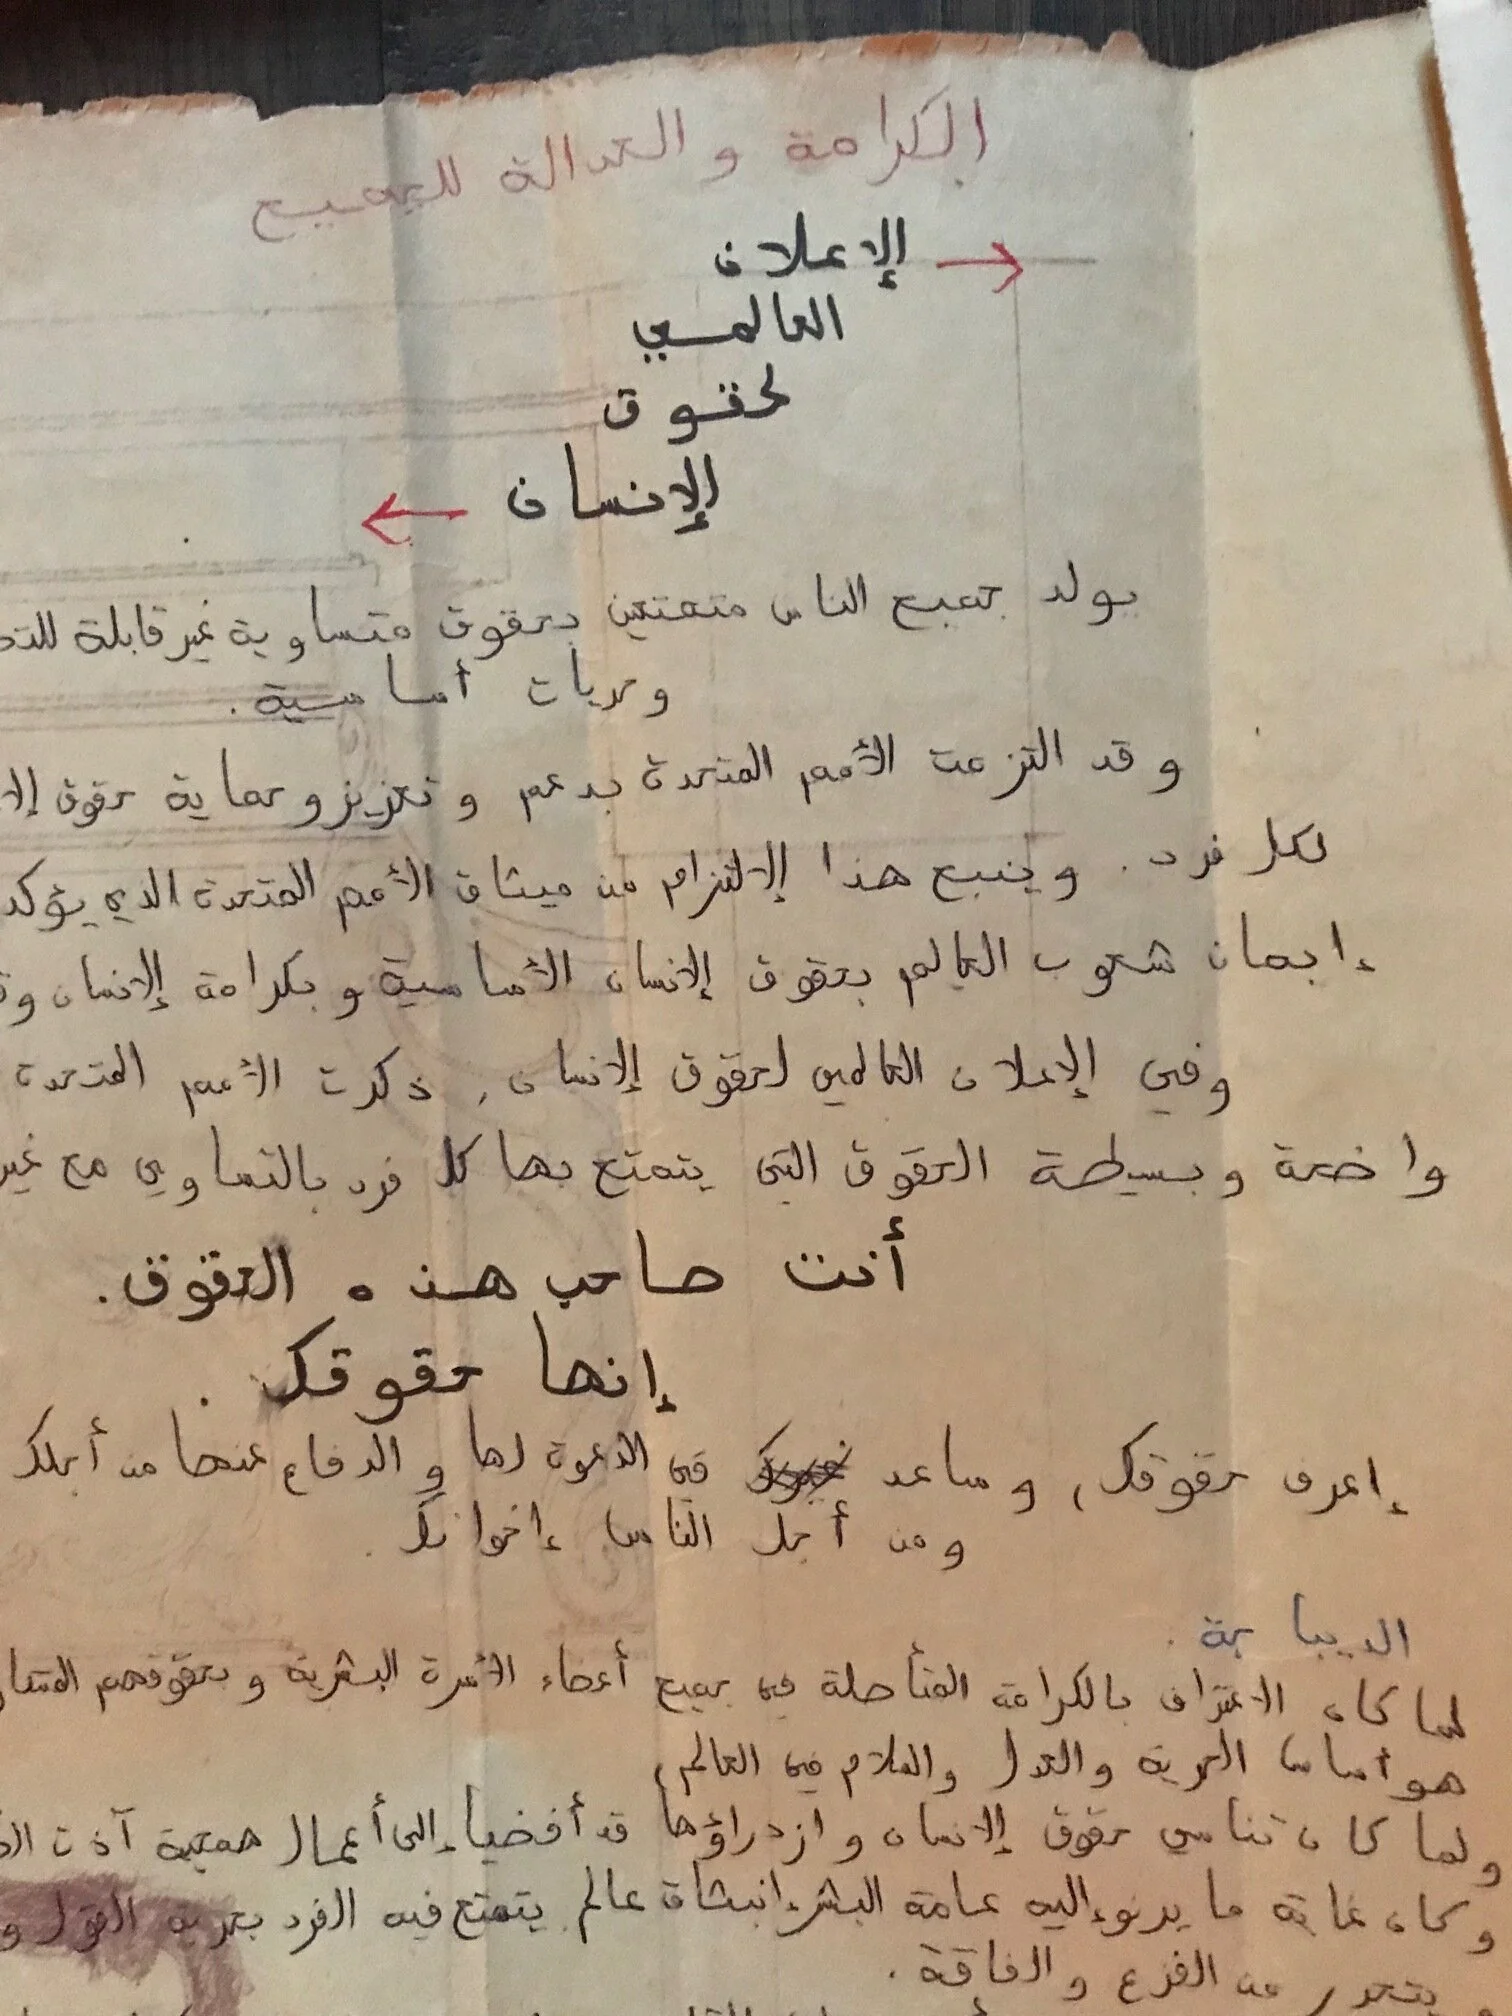 الكرامة و العدالة للجميع
الإعلان
العالمي
لحقوق
الإنسان
يولد جميع الناس متمتعين بحقوق متساوية غير قابلة
وحريات أساسية.
وقد التزمت الأمم المتحدة بدعم وتعزيز وحماية حقوق
لكل فرد. وينبع هذا الإلتزام من ميثاق الأمم المتحدة الدي يؤكد
إيمان شعوب العالم بحقوق الإنسان الأساسية وبكرامة الإنسان
وفي الإعلان العالمي لحقوق الإنسان، ذكرت الأمم المتحدة
واضحة وبسيطة الحقوق التي يتمتع بها كل فرد بالتساوي مع
أنت صاحب هذه الحقوق.
إنها حقوقك.
إعرف حقوقك، وساعد في الدعوة لها و الدفاع عنها من أجلك
ومن أجل الناس إخوانك.
الديباجة.
لما كان الاعتراف بالكرامة المتأصلة في جميع أعضاء الأسرة البشرية وبحقوقهم
هو أساس الحرية والعدل والسلام في العالم،
ولما كان تناسي حقوق الإنسان وازدراؤها قد أفضيا إلى أعمال همجية آذت
وكان غاية ما يرنو إليه عامة البشر إنبثاق عالم يتمتع فيه الفرد بحرية القول
من الفزع والفاقة.